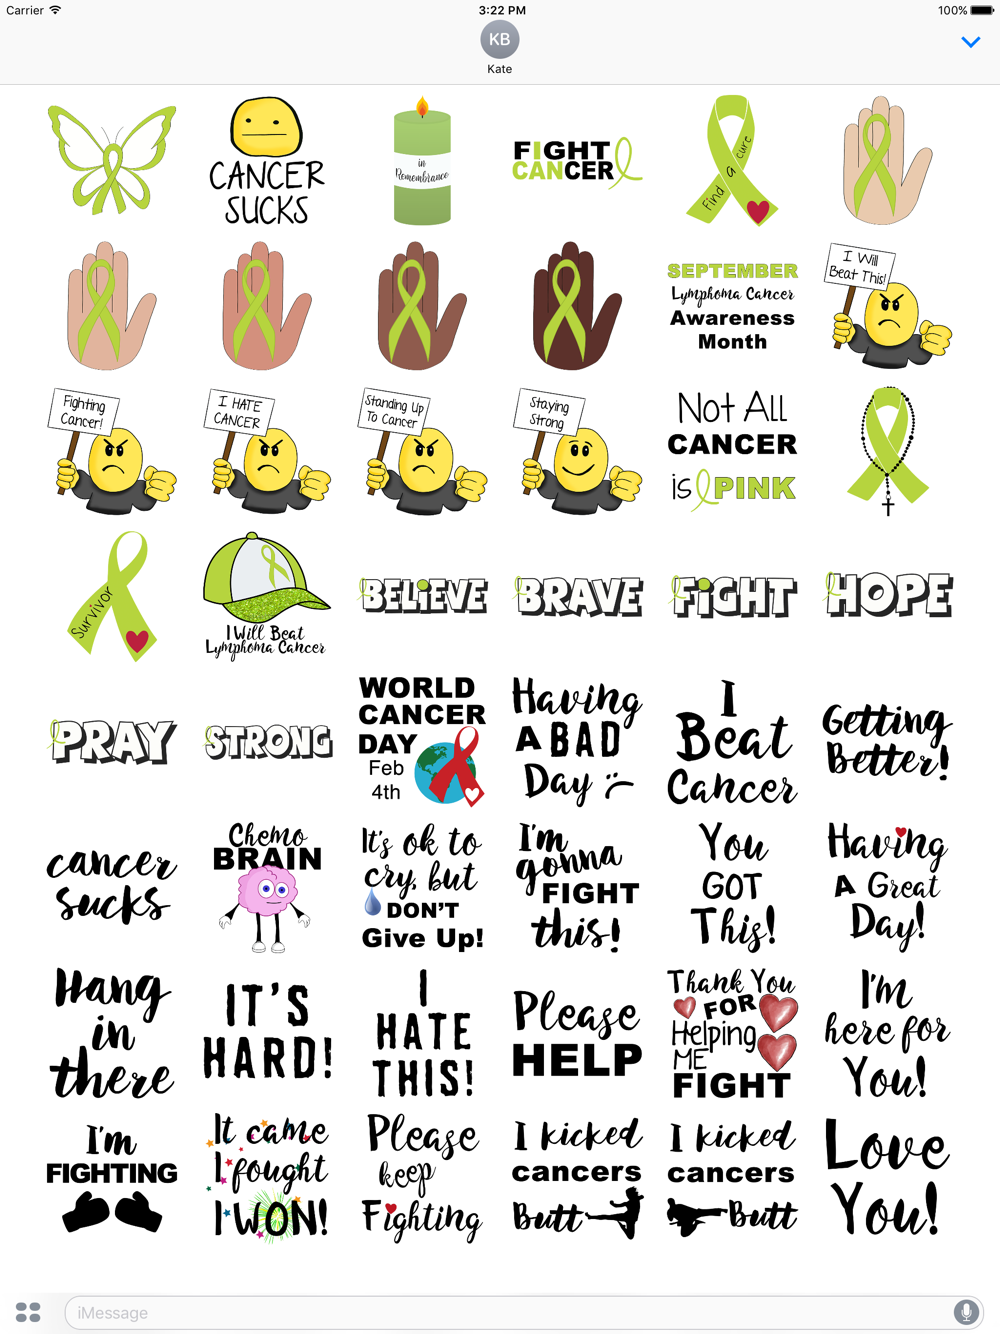 Carrier
3:22 PM
100%
KB
Kate
CANCER
SUCKS
in
Remembrance
FIGHT
CANCER
Find a cure
SEPTEMBER
Lymphoma Cancer
Awareness
Month
I Will
Beat This!
Fighting
Cancer!
I HATE
CANCER
Standing Up
To Cancer
Staying
Strong
Not All
CANCER
is PINK
Survivor
I Will Beat
Lymphoma Cancer
BELiEVE
BRAVE
FiGHT
HOPE
PRAY
STRONG
WORLD
CANCER
DAY
Feb
4th
Having
A BAD
Day :(
I
Beat
Cancer
Getting
Better!
cancer
sucks
Chemo
BRAIN
It's ok to
cry, but
DON'T
Give Up!
I'm
gonna
FIGHT
this!
You
GOT
This!
Having
A Great
Day!
Hang
in
there
IT'S
HARD!
I
HATE
THIS!
Please
HELP
Thank You
FOR
Helping
ME
FIGHT
I'm
here for
You!
I'm
FIGHTING
It came
I fought
I WON!
Please
keep
Fighting
I kicked
cancers
Butt
I kicked
cancers
Butt
Love
You!
iMessage